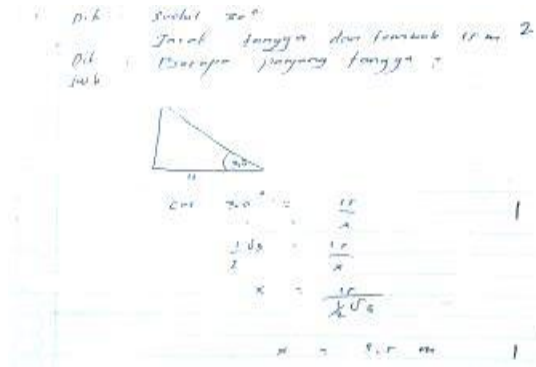 Dik Sudut 30°
Jarak tangga dan tembok 15 m 2
Dit : Berapa panjang tangga ?
Jwb
30°
15
cos 30° = 15/x 1
1/2 √3 = 15/x
x = 15/(1/2 √3)
x = m 1